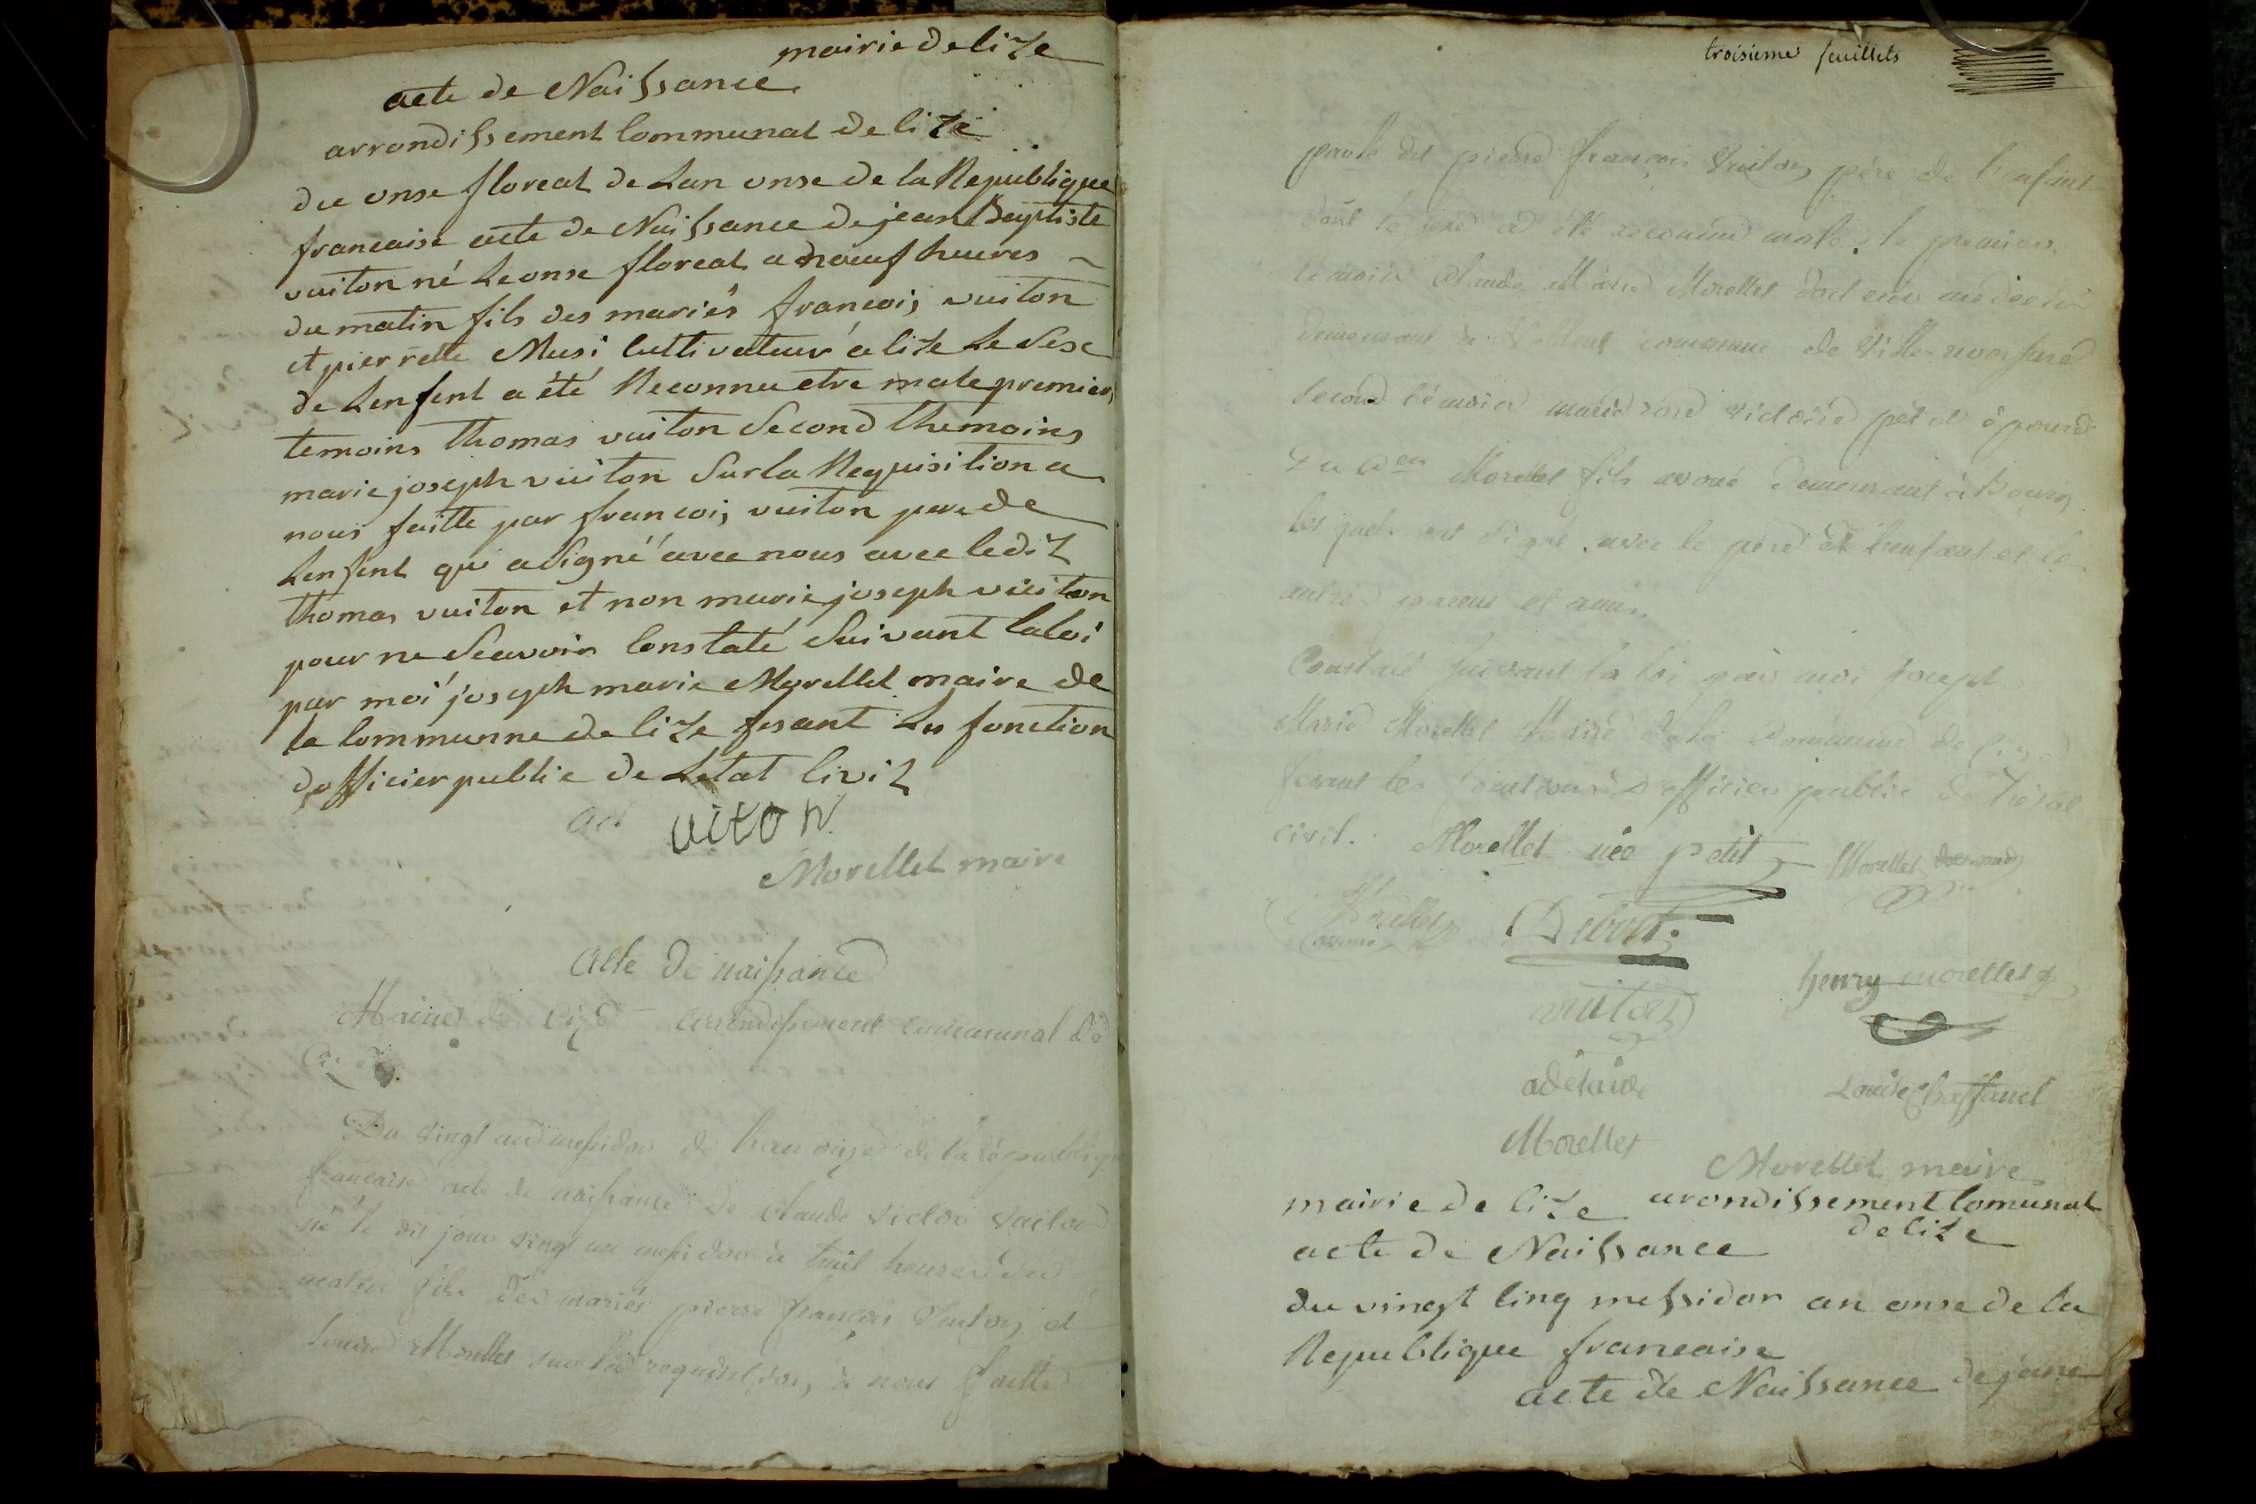 mairie de Cize
acte de Naissance
arrondissement Communal de Cize
du onse floreal de Lan onse de la Republique
francaise acte de Naissance de jean Baptiste
vuiton né Le onse floreal a noeuf heures
du matin fils des mariés francois vuiton
et pierrette Musi Cultivateur a Cize Le Sexe
de Lenfent a été Reconnu etre male premier
temoins thomas vuiton Second themoins
marie joseph vuiton Sur la Requisition a
nous faitte par francois vuiton pere de
Lenfent qui a Signé avec nous avec ledit
thomas vuiton et non marie joseph vuiton
pour ne Scavoir Constaté Suivant la loi
par moi joseph marie Morellet maire de
la Communne de Cize fesant Les fonction
dofficier public de Letat Civil
viton
Morellet maire
acte de naissance
Mairie de Cize arrondissement communal de
Cize
Du vingt un messidor de l'an onze de la république
francaise acte de naissance de Claude Victor Vuiton
né le dit jour vingt un messidor à huit heures du
matin fils des mariés pierre françois Vuiton et
Louise Morellet sur la requisition à nous faitte
troisieme feuillets
par le dit pierre françois Vuiton père de l'enfant
dont le sexe a été reconnu male, le premier
témoin Claude Marie Morellet docteur médecin
demeurant à commune de Villereversure
second témoin marie rose victoire petit épouse
du Cen Morellet fils avoué demeurant à Bourg
lesquels ont signé avec le père de l'enfant et les
autres parens et amis.
Constaté suivant la loi par moi Joseph
Marie Morellet Maire de la Commune de Cize
fesant les fonctions d'officier public de l'état
civil. Morellet née petit Morellet
Morellet
avoué Debost
henry morellet
vuiton
adelaide Louise Chaffanel
Morellet
Morellet maire
mairie de Cize arondissement Comunal
de Cize
acte de Naissance
du vingt Cinq messidor an onse de la
Republique francaise
acte de Naissance de jane